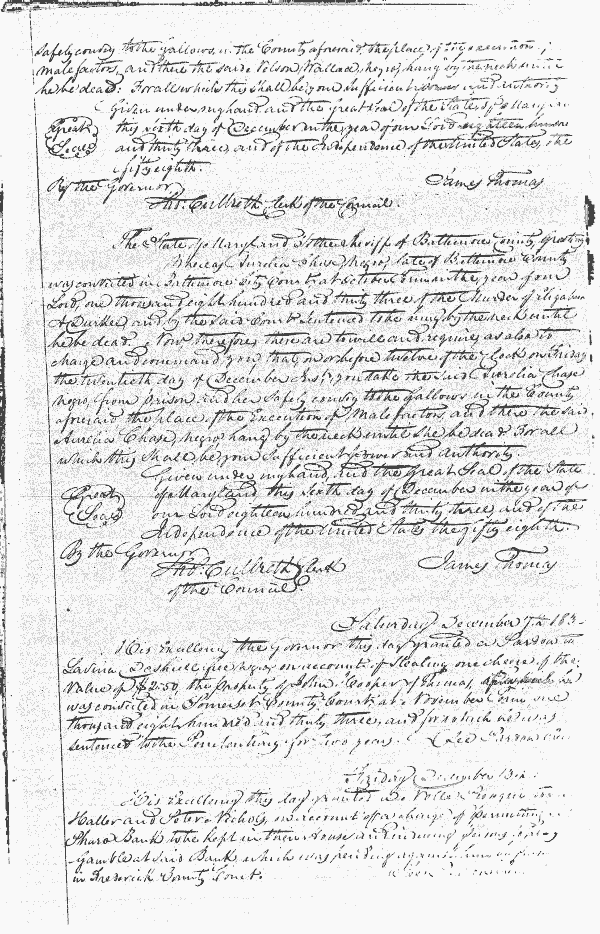 safely convey to the gallows in the County aforesaid, the place of the execution of
malefactors, and there the said Nelson Wallace, negro, hang by the neck until
he be dead: For all which this shall be your sufficient power and authority
Given under my hand and the Great Seal of the State of Maryland
Great this sixth day of December in the year of our Lord eighteen hundred
Seal and thirty three, and of the Independence of the United States, the
fifty eighth.
By the Governor James Thomas
Thos. Culbreth Clerk of the Council.
The State of Maryland To the Sheriff of Baltimore County Greeting
Whereas Aurelia Chase, Negro, late of Baltimore County
was convicted in Baltimore City Court at October term in the year of our
Lord, one thousand eight hundred and thirty three of the Murder of
and by the said Court sentenced to be hung by the neck until
he be dead. Now therefore these are to will and require, as also to
charge and command, you that on or before twelve of the Clock on Friday
the twentieth day of December Inst. you take the said Aurelia Chase
negro, from prison, and her safely convey to the gallows in the County
aforesaid the place of the Execution of Malefactors, and there the said
Aurelia Chase, negro, hang by the neck until She be dead For all
which this Shall be your Sufficient power and authority.
Given under my hand, and the Great Seal of the State
Great of Maryland this Sixth day of December in the year of
Seal our Lord eighteen hundred and thirty three, and of the
Independence of the United States the fifty eighth.
By the Governor
Thos. Culbreth Clerk James Thomas
of the Council
Saturday December 7th 183
His Excellency the governor this day granted a Pardon to
Lavina Dashiell free negro on account of Stealing one cheese of the
Value of $2.50, the property of John Cooper of Thomas,
was convicted in Somerset County Court at November Term one
thousand eight hundred and thirty three, and for which was
sentenced to the Penitentiary for two years.
Friday December 13th
His Excellency this day granted
Haller and Peter Nichols, on account of a charge of permitting
Pharo Bank to be kept in their House
Gamble at said Bank, which was pending against
in Frederick County Court.